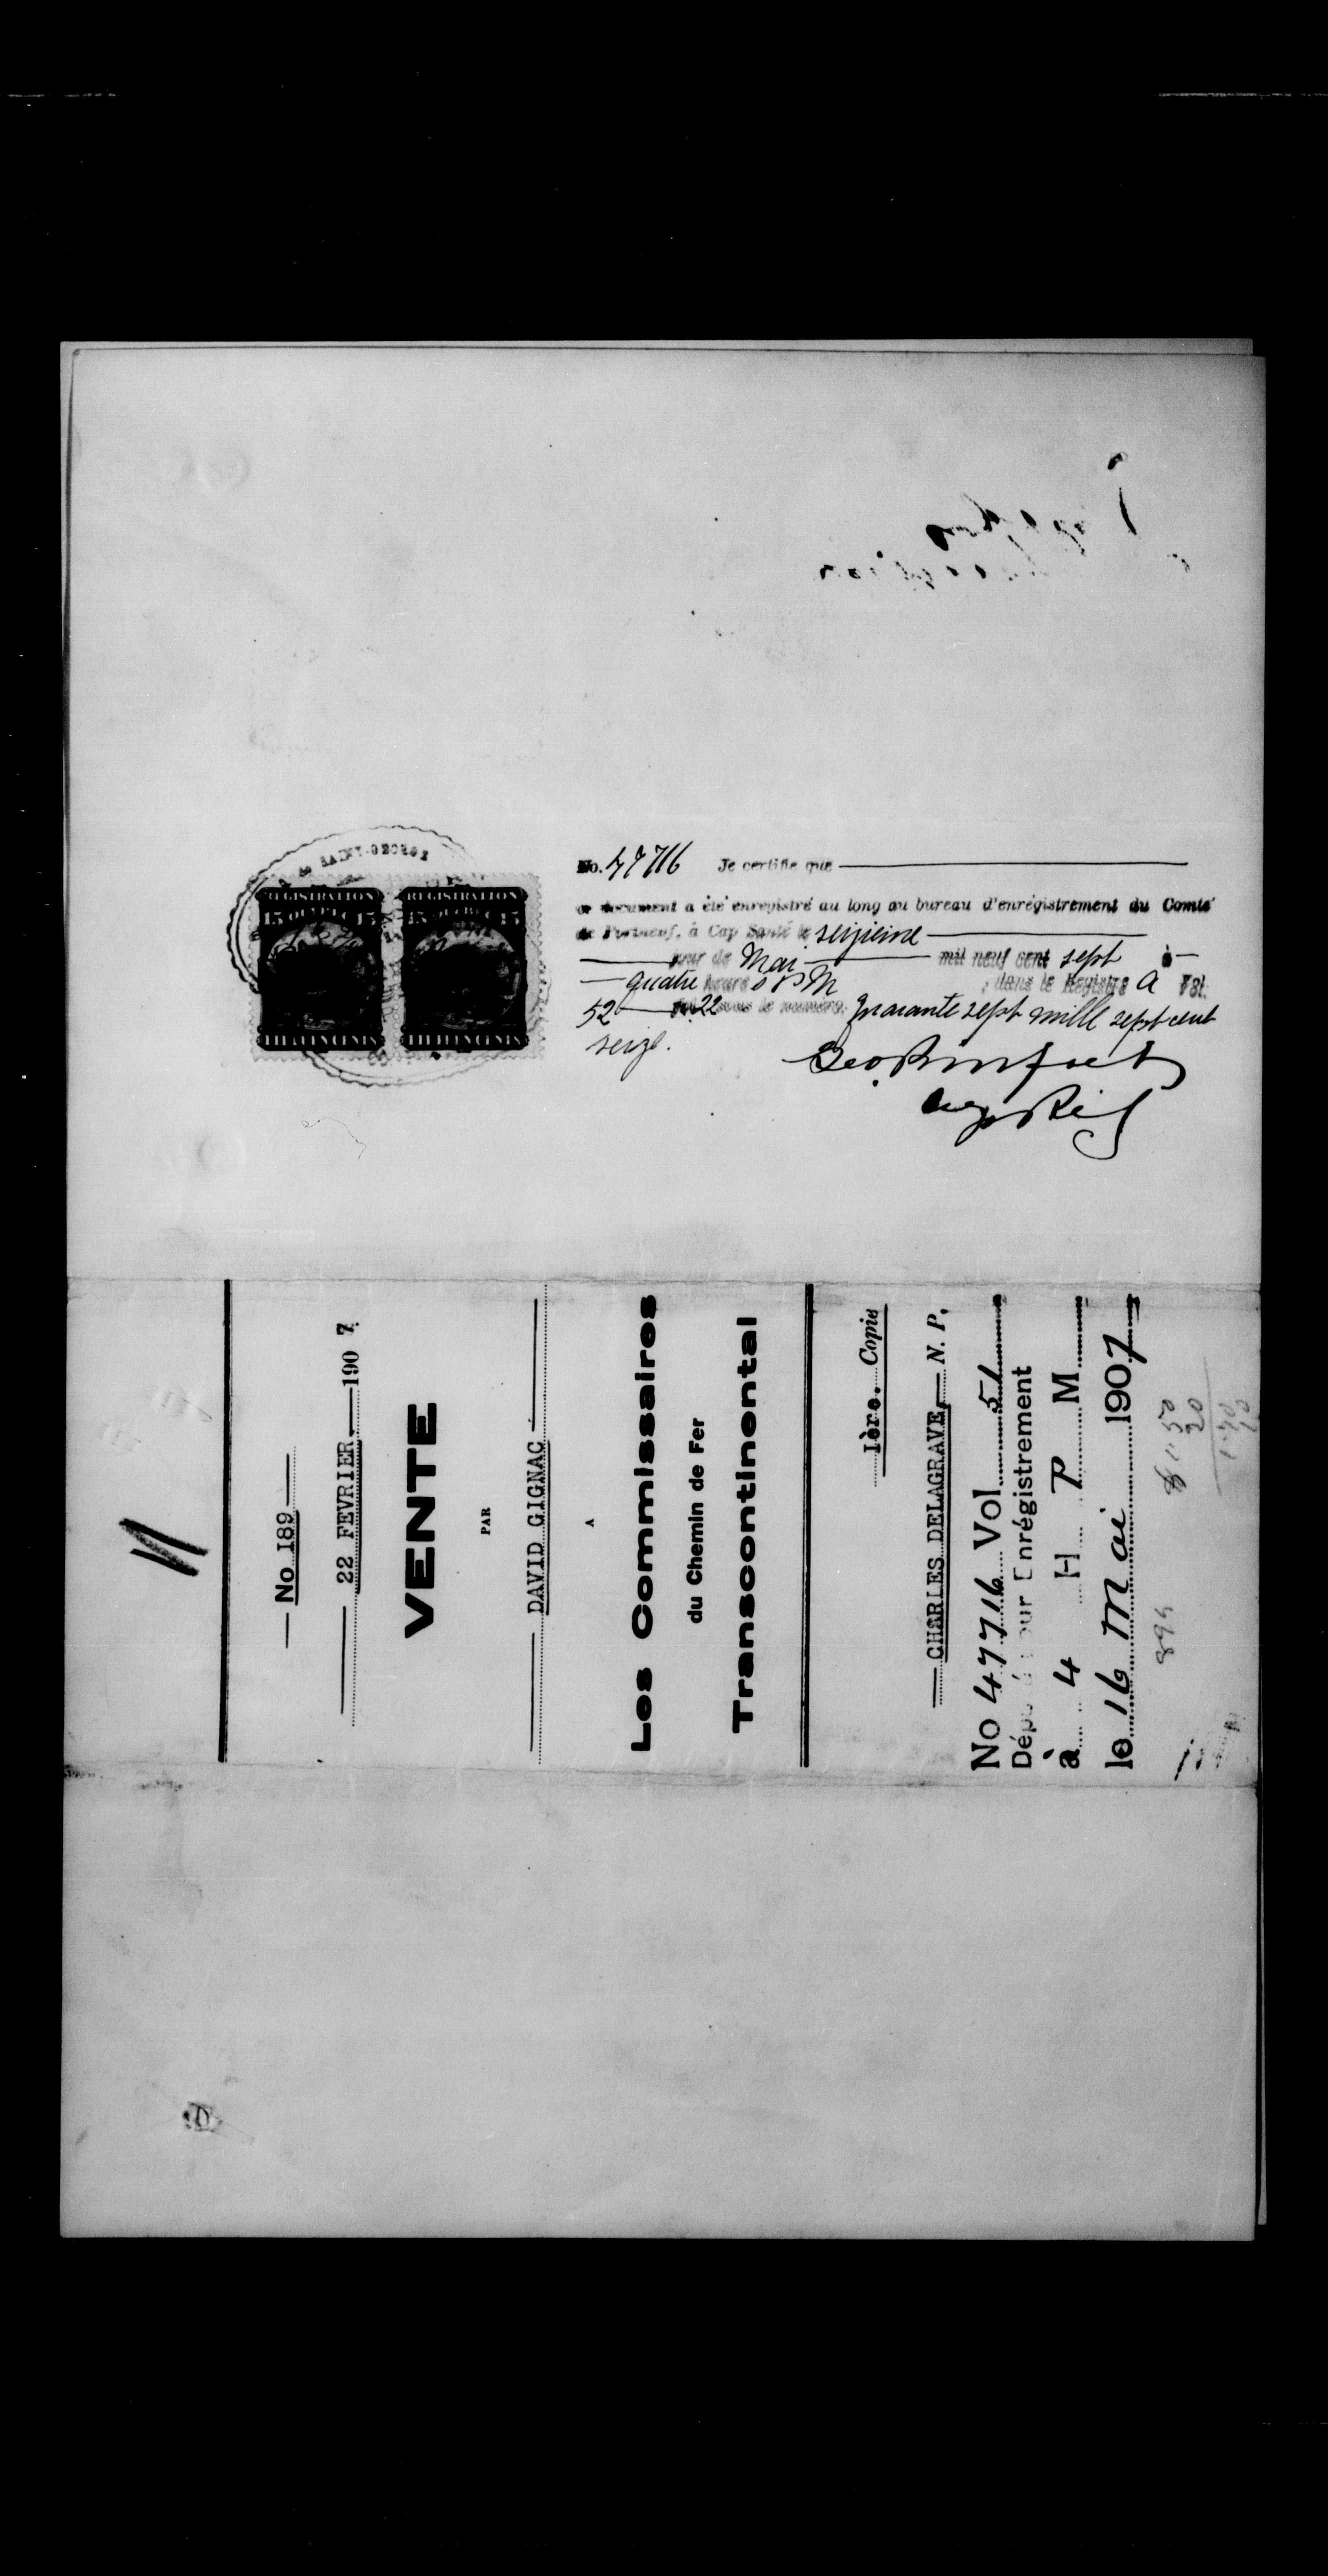 No. 47716 Je certifie que
ce document a été enregistré au long au bureau d'enrégistrement du Comté
de Portneuf, à Cap Santé le seizieme
jour de Mai mil neuf cent sept à
quatre heures P M dans le Registre A Vol.
52 22 sous le numéro. Quarante sept mille sept cent
seize.
REGISTRATION REGISTRATION
15 QUEBEC 15 15 QUEBEC 15
No 189
22 FEVRIER 1907
VENTE
PAR
DAVID GIGNAC
A
Les Commissaires
du Chemin de Fer
Transcontinental
1ère. Copie
CHARLES DELAGRAVE, N. P.
No 47716 Vol 51
Déposé pour Enrégistrement
à 4 H P M
le 16 Mai 1907
$ 1.50
20
1.70